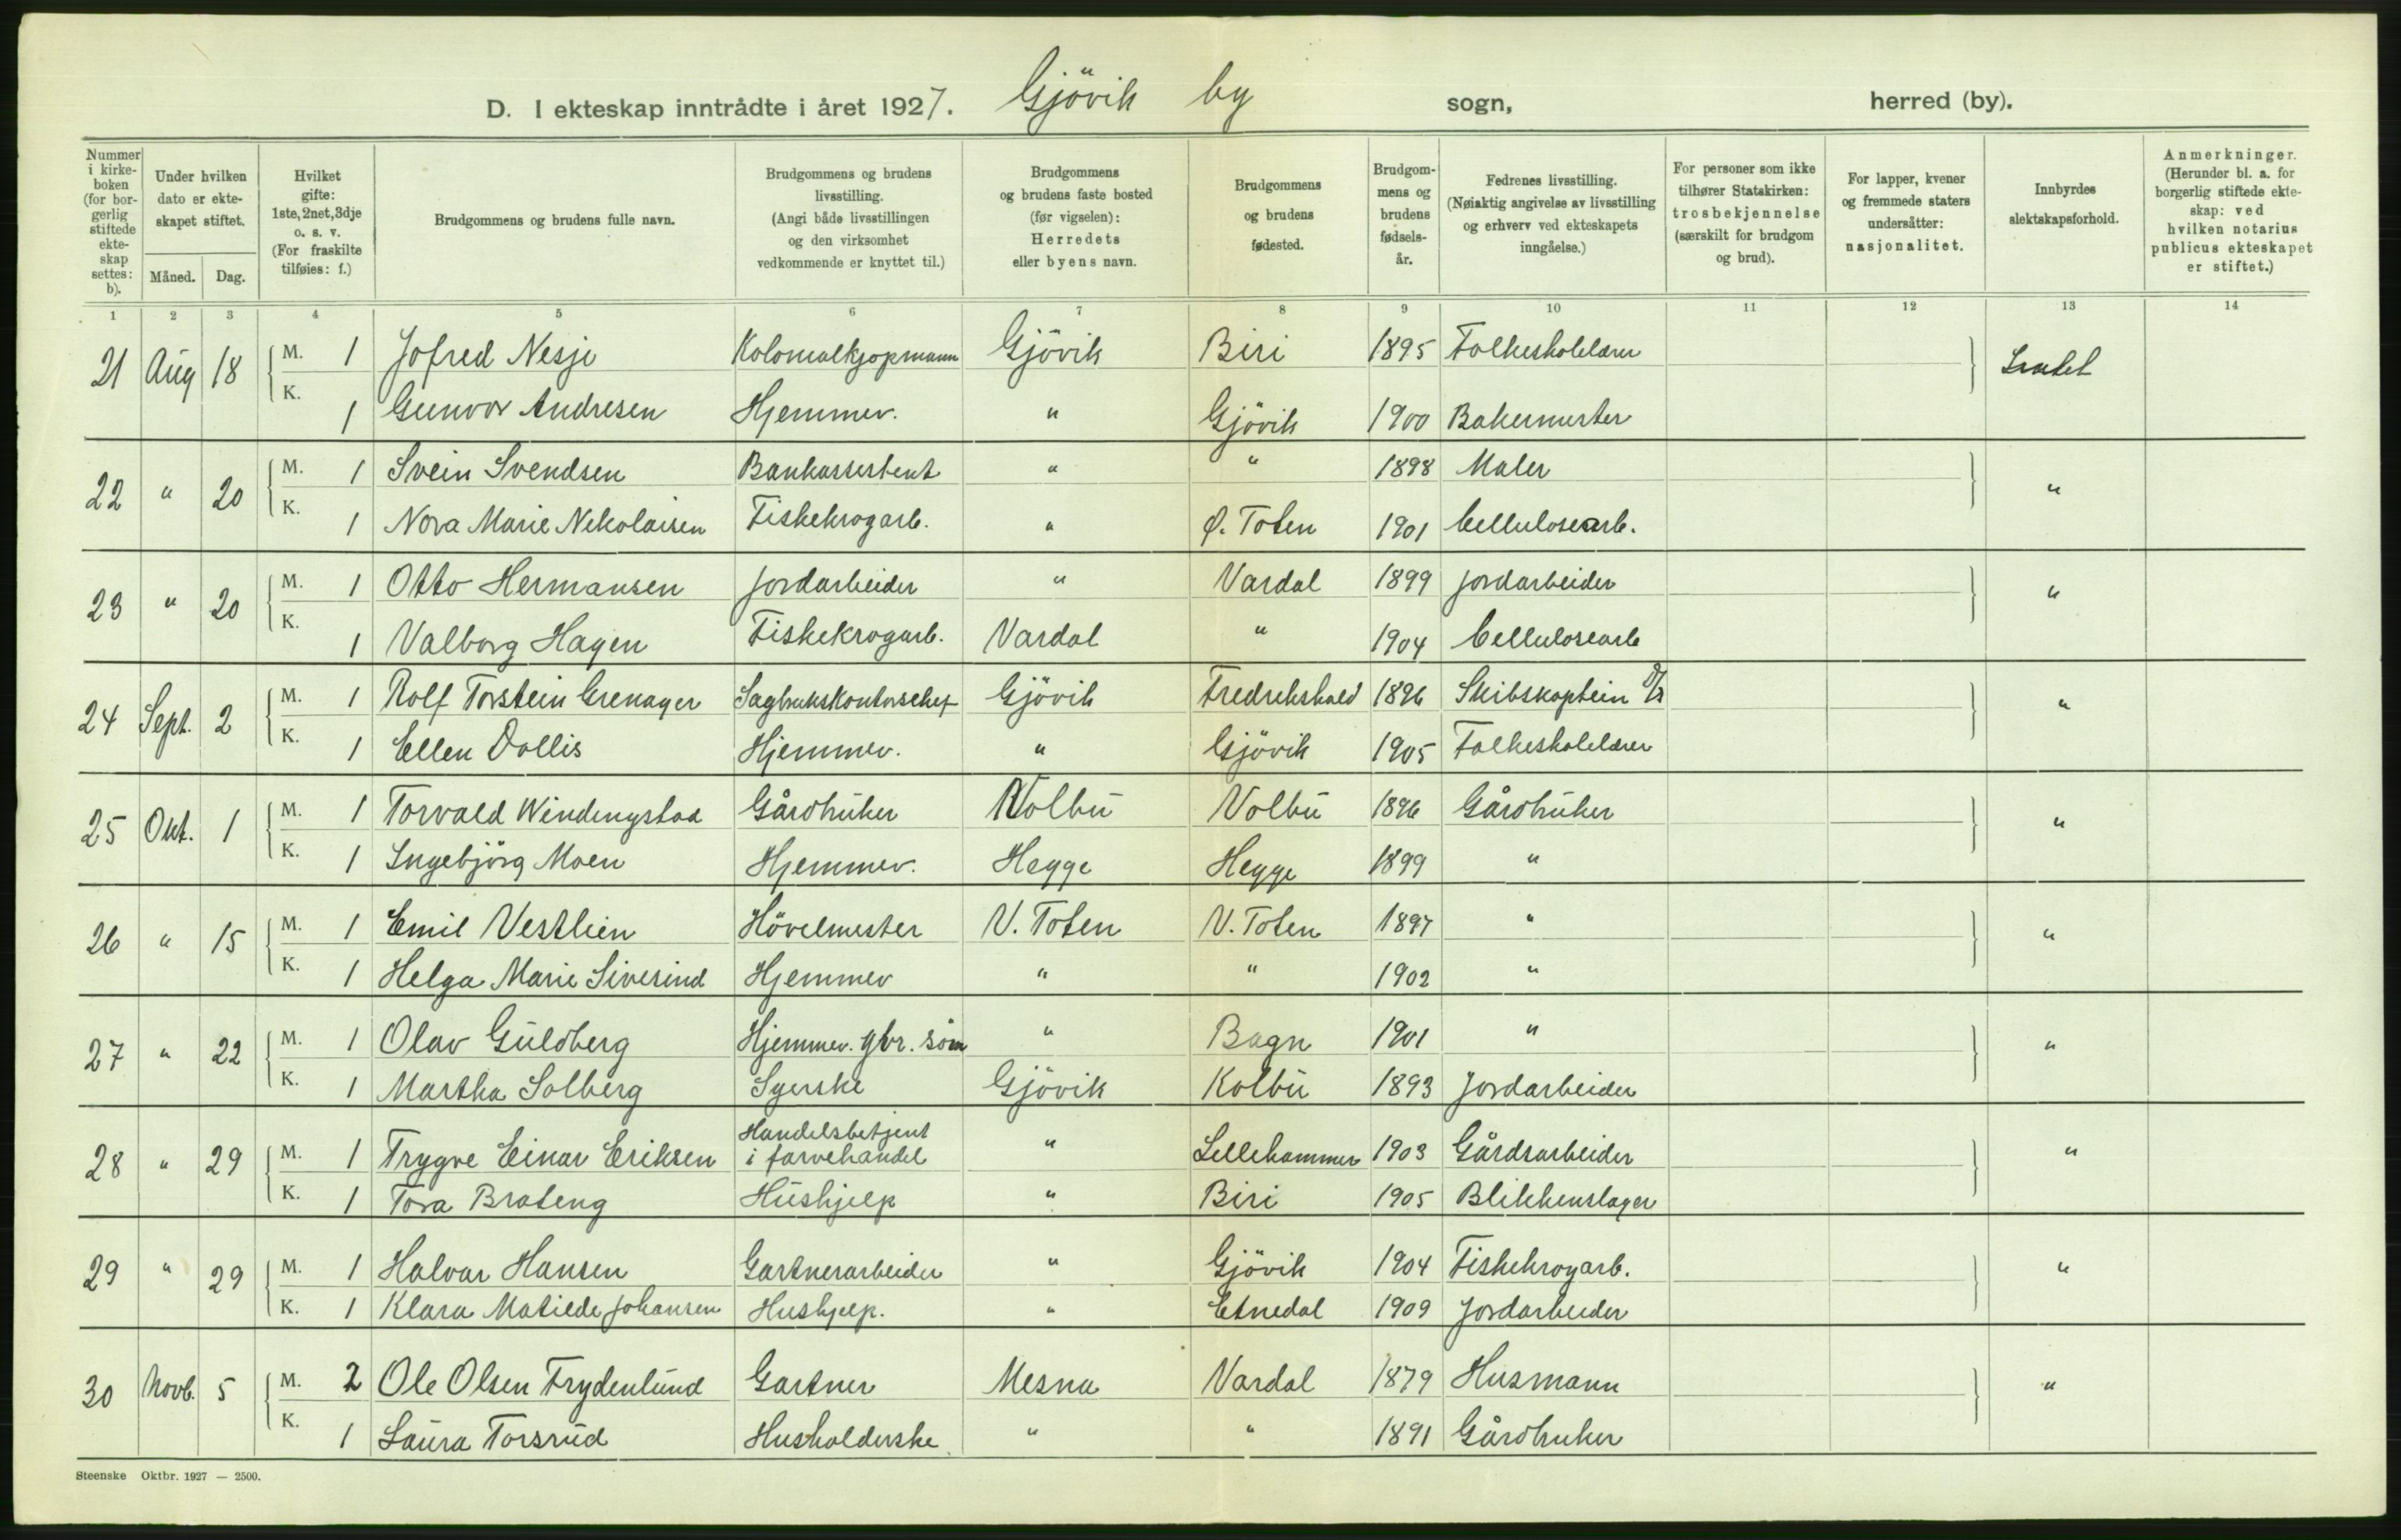 D. I ekteskap inntrådte i året 1927. Gjövik by sogn, herred (by).
Nummer i kirkeboken (for borgerlig stiftede ekteskap settes: b).
Under hvilken dato er ekteskapet stiftet.
Måned. Dag.
Hvilket gifte: 1ste, 2net, 3dje o. s. v. (For fraskilte tilføies: f.)
Brudgommens og brudens fulle navn.
Brudgommens og brudens livsstilling. (Angi både livsstillingen og den virksomhet vedkommende er knyttet til.)
Brudgommens og brudens faste bosted (før vigselen): Herredets eller byens navn.
Brudgommens og brudens fødested.
Brudgommens og brudens fødselsår.
Fedrenes livsstilling. (Nøiaktig angivelse av livsstilling og erhverv ved ekteskapets inngåelse.)
For personer som ikke tilhører Statskirken: trosbekjennelse (særskilt for brudgom og brud).
For lapper, kvener og fremmede staters undersåtter: nasjonalitet.
Innbyrdes slektskapsforhold.
Anmerkninger. (Herunder bl. a. for borgerlig stiftede ekteskap: ved hvilken notarius publicus ekteskapet er stiftet.)
1 2 3 4 5 6 7 8 9 10 11 12 13 14
21 Aug 18 M. 1 Jofred Nesje Kolonialkjøpmann Gjövik Biri 1895 Folkeskolelærer Intet
K. 1 Gunvor Andresen Hjemmev. " Gjövik 1900 Bakermester
22 " 20 M. 1 Svein Svendsen Bankassistent " " 1898 Maler "
K. 1 Nora Marie Nikolaisen Fiskekrogarb. " Ø. Toten 1901 Cellulosearb.
23 " 20 M. 1 Otto Hermansen Jordarbeider " Vardal 1899 Jordarbeider "
K. 1 Valborg Hagen Fiskekrogarb. Vardal " 1904 Cellulosearb
24 Sept. 2 M. 1 Rolf Torstein Grenager Sagbrukskontorschef Gjövik Fredrikshald 1896 Skibskaptein "
K. 1 Ellen Dallis Hjemmev. " Gjövik 1905 Folkeskolelærer
25 Okt. 1 M. 1 Torvald Windingstad Gårdbruker Volbu Volbu 1896 Gårdbruker "
K. 1 Ingebjörg Moen Hjemmev. Hegge Hegge 1899 "
26 " 15 M. 1 Emil Vestlien Hövelmester V. Toten V. Toten 1897 " "
K. 1 Helga Marie Siverind Hjemmev " " 1902 "
27 " 22 M. 1 Olav Guldberg Hjemmev. gbr. sön " Bagn 1901 " "
K. 1 Martha Solberg Syerske Gjövik Kolbu 1893 Jordarbeider
28 " 29 M. 1 Trygve Einar Eriksen Handelsbetjent i farvehandel " Lillehammer 1903 Gårdsarbeider "
K. 1 Tora Brateng Hushjelp " Biri 1905 Blikkenslager
29 " 29 M. 1 Halvar Hansen Gartnerarbeider " Gjövik 1904 Fiskekrogarb. "
K. 1 Klara Matilde Johansen Hushjelp. " Etnedal 1909 Jordarbeider
30 Novb. 5 M. 2 Ole Olsen Frydenlund Gartner Mesna Vardal 1879 Husmann "
K. 1 Laura Torsrud Husholderske " " 1891 Gårdbruker
Steenske Oktbr. 1927 — 2500.